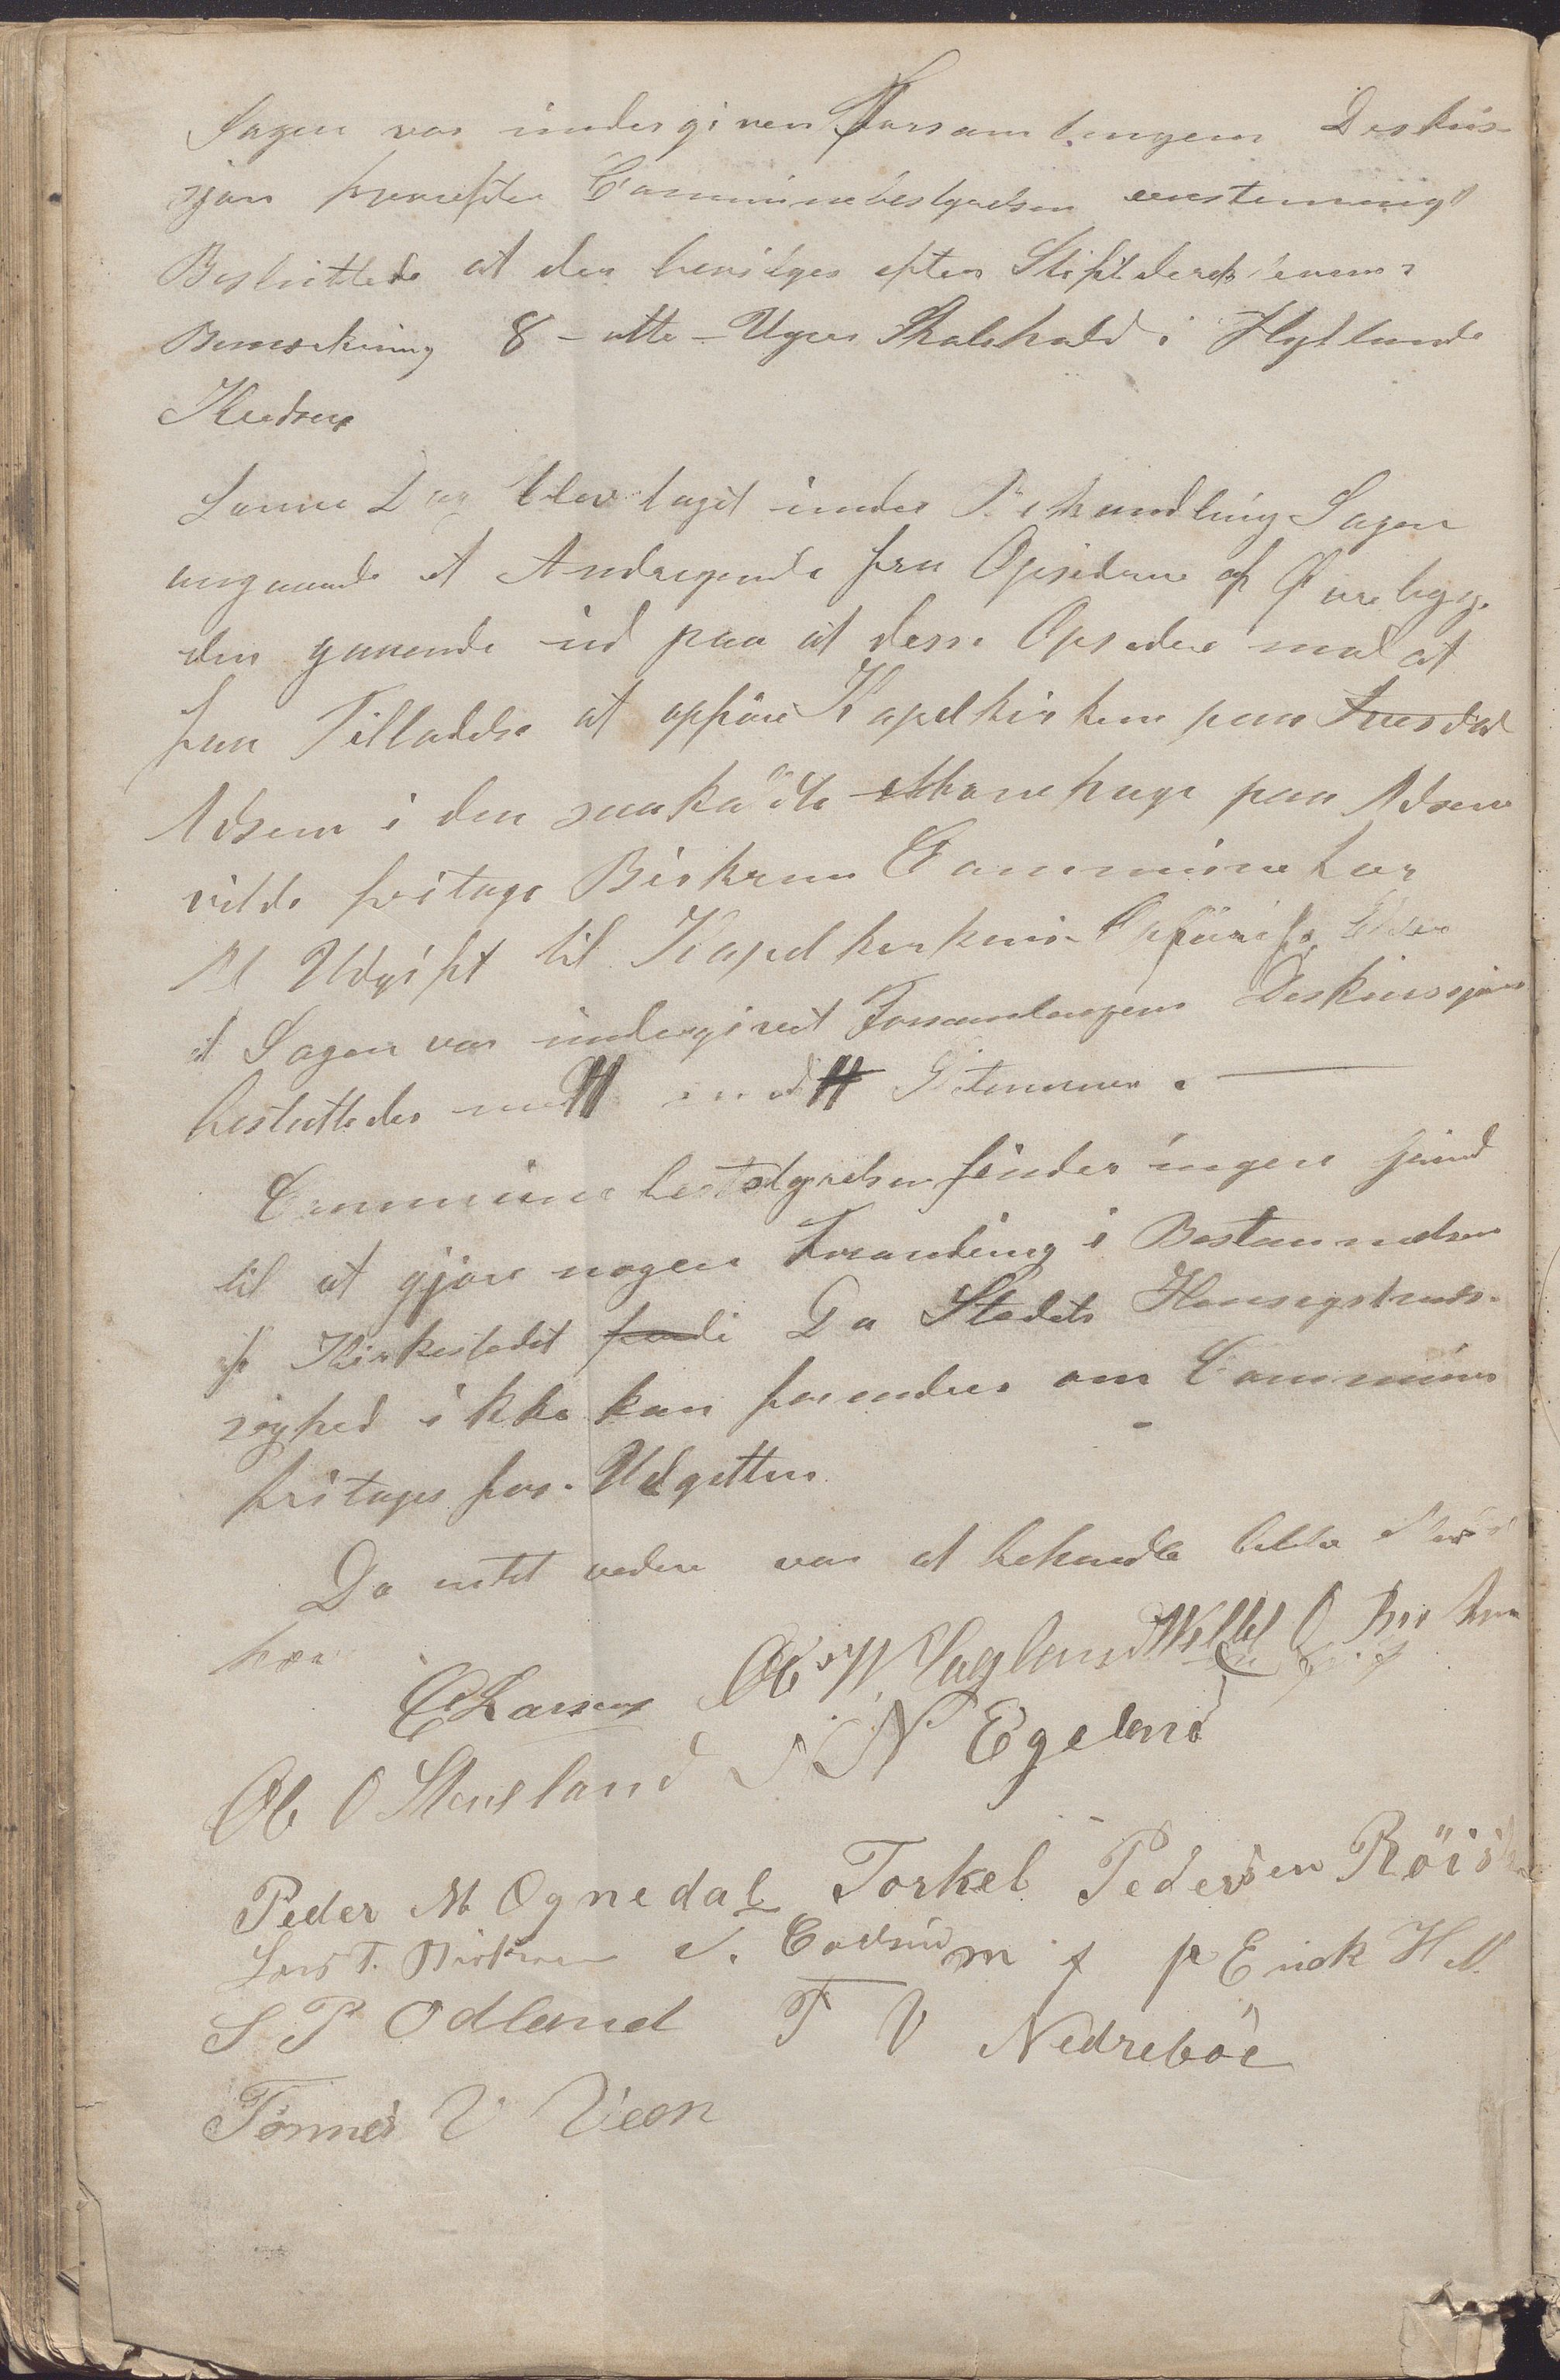 Sagen var undergiven Forsamlingens Diskus-
sjon hvorefter Communebestyrelsen eenstemmigt
Besluttede at der bevilges efter Stiftsdirektionens
Bemærkning 8 - otte - Uger Skolehold i Hytlands
Kredsen
Samme Dag blev taget under Behandling Sagen
angaaende et Andragende fra Opsidderne af
den gaaende ud paa at disse Opsiddere mod at
faa Tilladelse at opføre Kapelkirken paa
i den saakaldte paa
vilde fritage Birkrem Commune for
Al Udgift til Kapelkirkens Opførelse Efter
at Sagen var undergivet Forsamlingens Diskussjon
besluttedes med mod Stemmer.
Communebestyrelsen finder ingen Grund
til at gjøre nogen Forandring i Bestemmelsen
af Kirkestedet fordi Da Stedets Hensigtsmæs-
sighed ikke kan forandres om Communen
fritages for Udgiften
Da intet videre var at behandle
hævet
C Larsen Ole W Vaglan O Birkrem
Ole O Steneland N Egeland
Peder M Ognedal Torkel Pedersen
Lars T. Birkrem
S P Odland T V Nedreböe
Tönnes V Veen